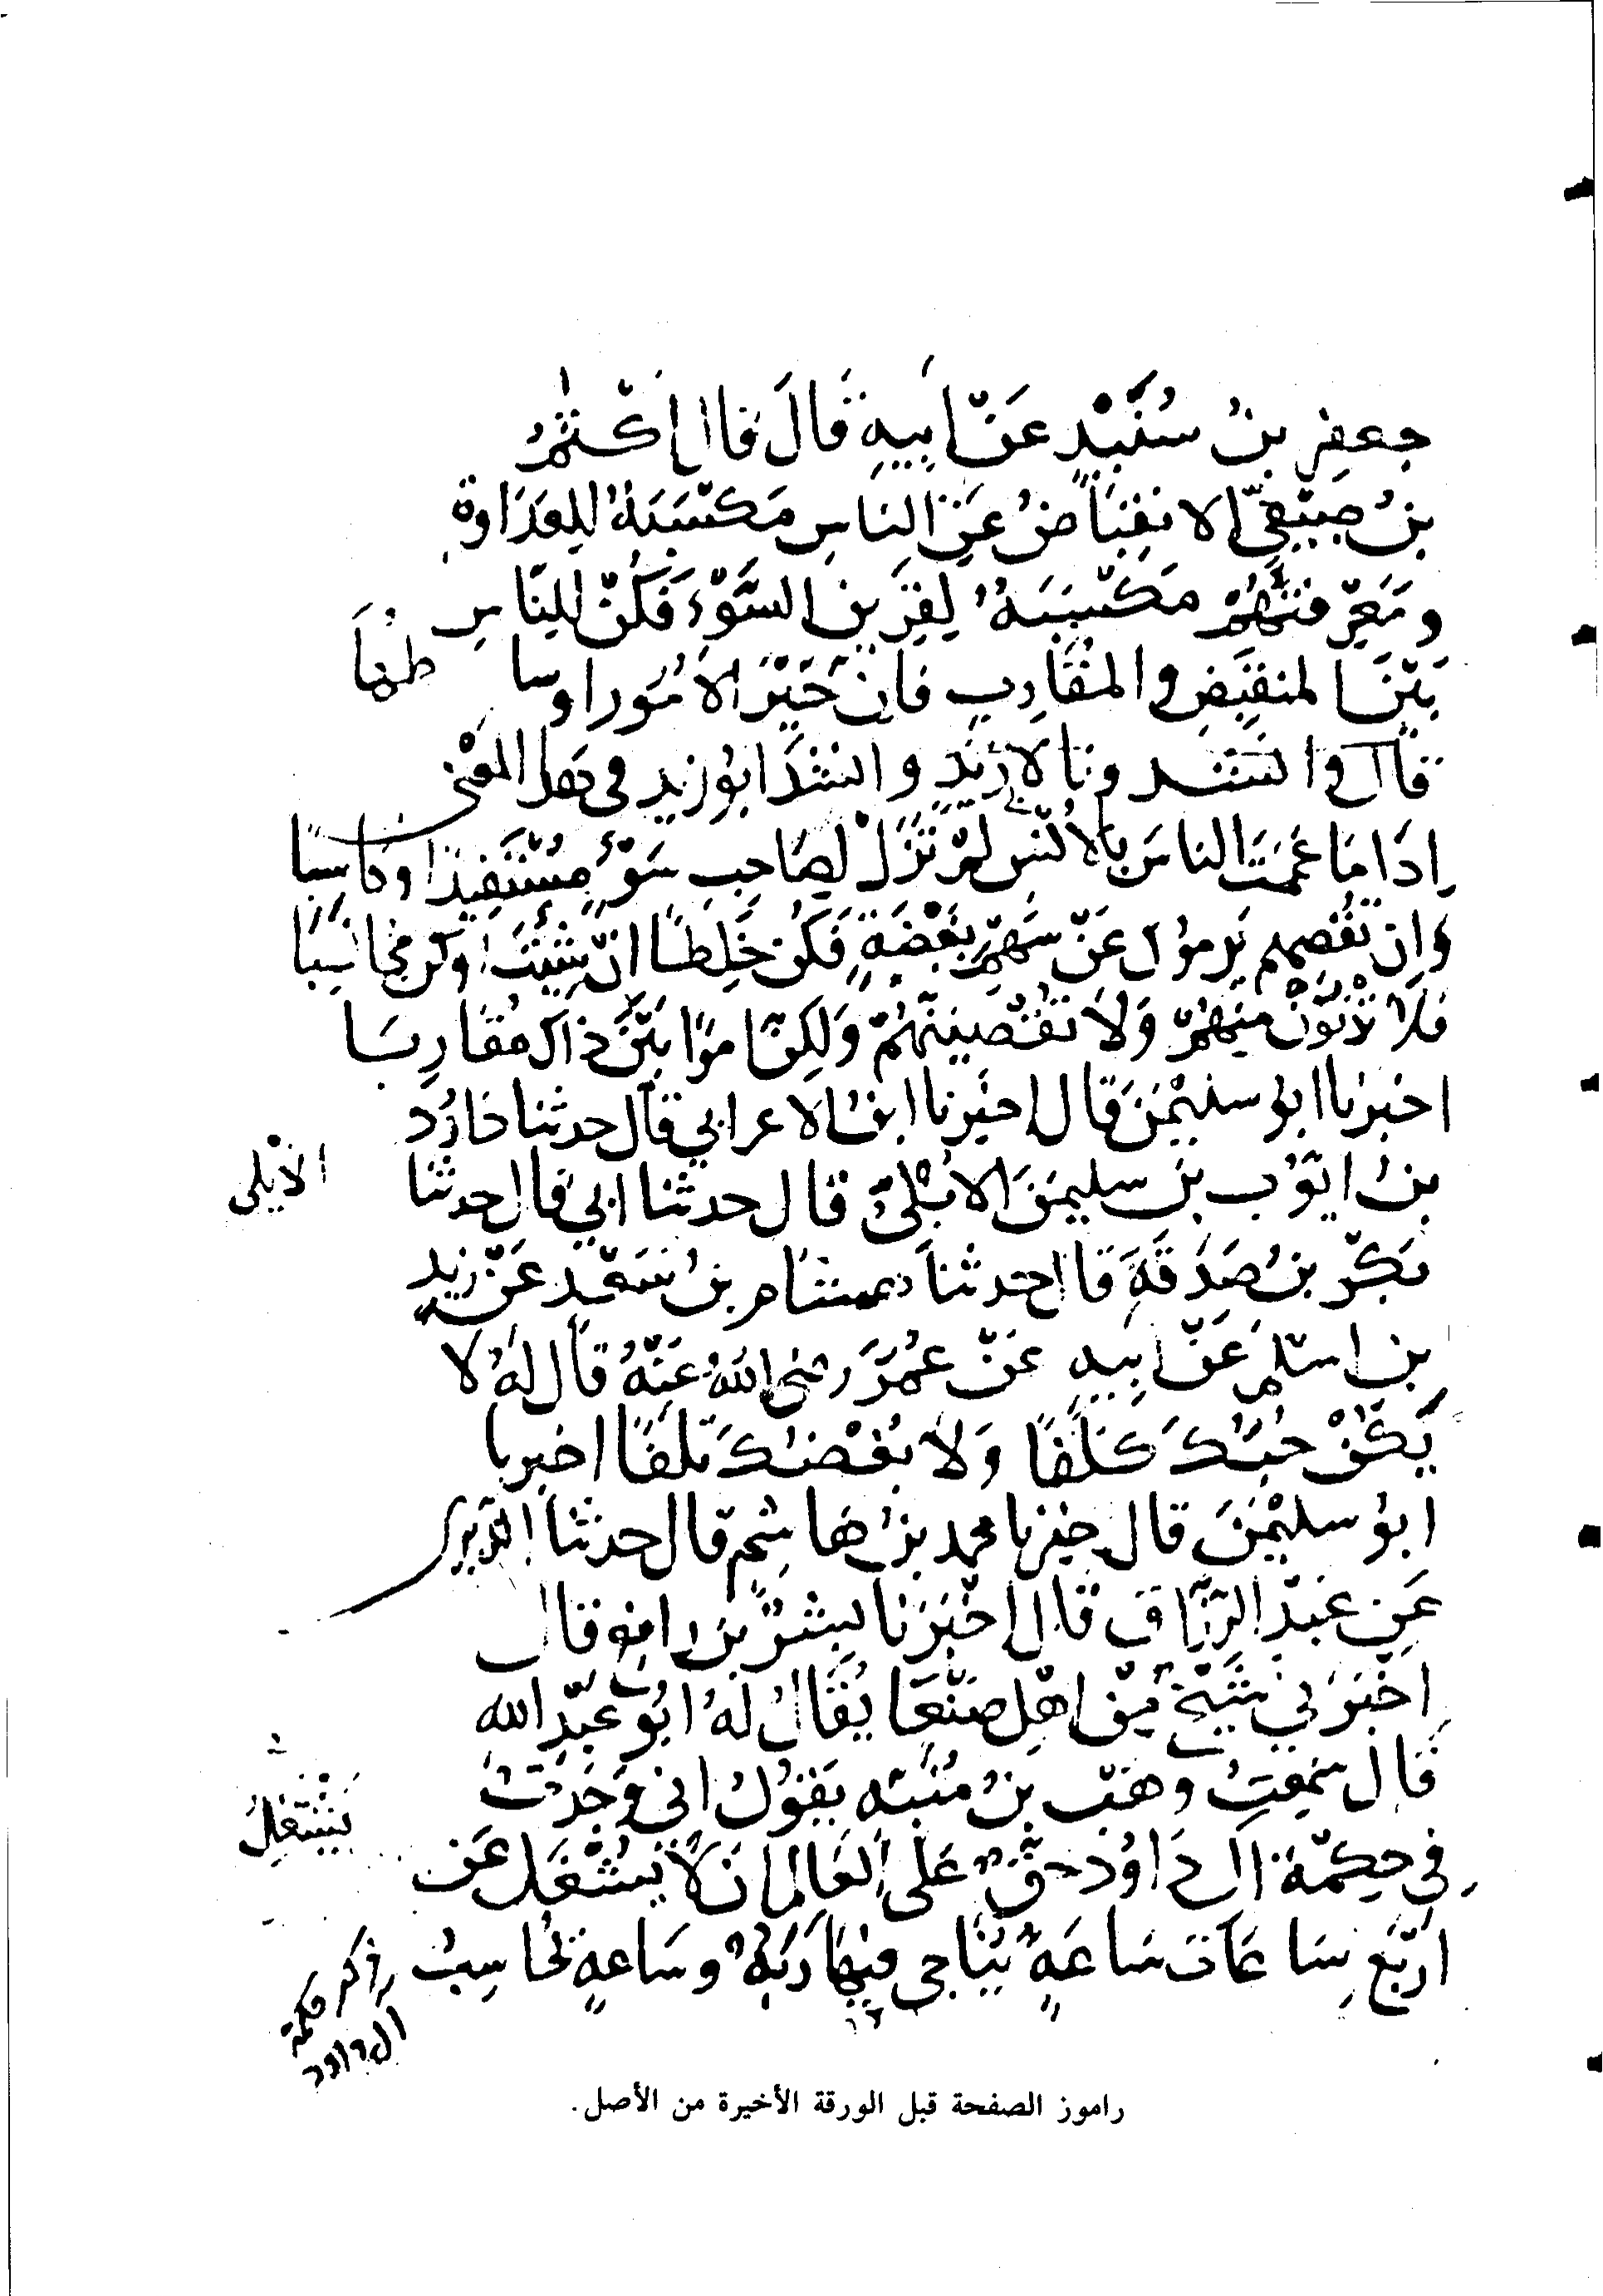 جعفر بنُ سُنَيْدٍ عَنْ اَبِيهِ قَالَ قَالَ اَكْثَمُ
بنُ صَيْفِيّ الانقِبَاضُ عَنِ النَاسِ مَكْسَبَةٌ لِلعَدَاوة
ومَعْرِفَتُهُمْ مَكْسَبَةٌ لِقَرِينِ السَّوْءِ فَكُنْ لِلنَّاسِ
بَيْنَ المنقَبِضِ والمُقَارِبِ فاِنَّ خَيْرَ الاُمُورِ اوسا
طُهَا
قال وانشدونا لاَبِي زَيْدٍ وانشَدَ ابو زيد في هذا المعْنى
اِذَا مَا عَمَمْتَ الناسَ بِالاُنْسِ لَمْ تَزَلْ لِصَاحِبِ سَوْءٍ مُسْتَفِيدًا وكَاسِبًا
وَاِن تُقْصِهِم يَرموك عَنْ سَهْمِ بِغْضَةٍ فَكُنْ خَلِطًا اِنْ شِئْتَ اَوكُنْ مجَانِبَا
فَلاَ تَدْنُوَنْ مِنْهُمْ وَلاَ تُقْصِيَنَّهُمْ وَلَكِنَّ امرًا بَيْنَ ذاك مُقَارِبَا
اخبَرَنا ابو سليْمَنَ قَال اخبَرنا ابنُ الاعرابي قال حدثنا دَاوُد
بنُ ايوُب بن سليمَنَ الاُبُلّيّ قال حدثنا ابي قال حدثنا
الأَيْلى
بَكْرُ بنُ صَدَقَةَ قال حَدثنا هشام بنُ سَعْد عَنْ زيدِ
بن اسْلم عَنْ اَبِيهِ عَنْ عُمَرَ رضى اللهُ عَنْهُ قَال لَهُ لا
يَكُنْ حُبُّكَ كَلَفًا وَلاَ بُغْضُكَ تَلَفًا اخبرنا
ابو سليْمَنَ قال اخبرنا محمد بن هَاشِم قال حدثنا الدَبري
عَن عَبْدِ الرزَّاق قال اخْبَرَنا بِشْرُ بن رافع قال
اخْبَرَني شَيْخٌ مِنْ اهْلِ صَنْعَا يُقَالُ لَهُ ابُو عَبْدِ الله
قال سَمِعتُ وهْب بنُ مُنَبِّه يَقُولُ اني وَجَدْتُ
فِي حِكْمَة ال دَاوُد حقٌّ عَلى العَاقل ان لاَ يُشْغَلَ عَن
يَشْتَغِلُ
اَرْبَع سَاعَات سَاعَةٍ يُنَاجى فيهَا رَبَّهُ وسَاعةٍ يُحَاسِبُ
ذاكر حكمة
ال داود
راموز الصفحة قبل الورقة الأخيرة من الأصل.